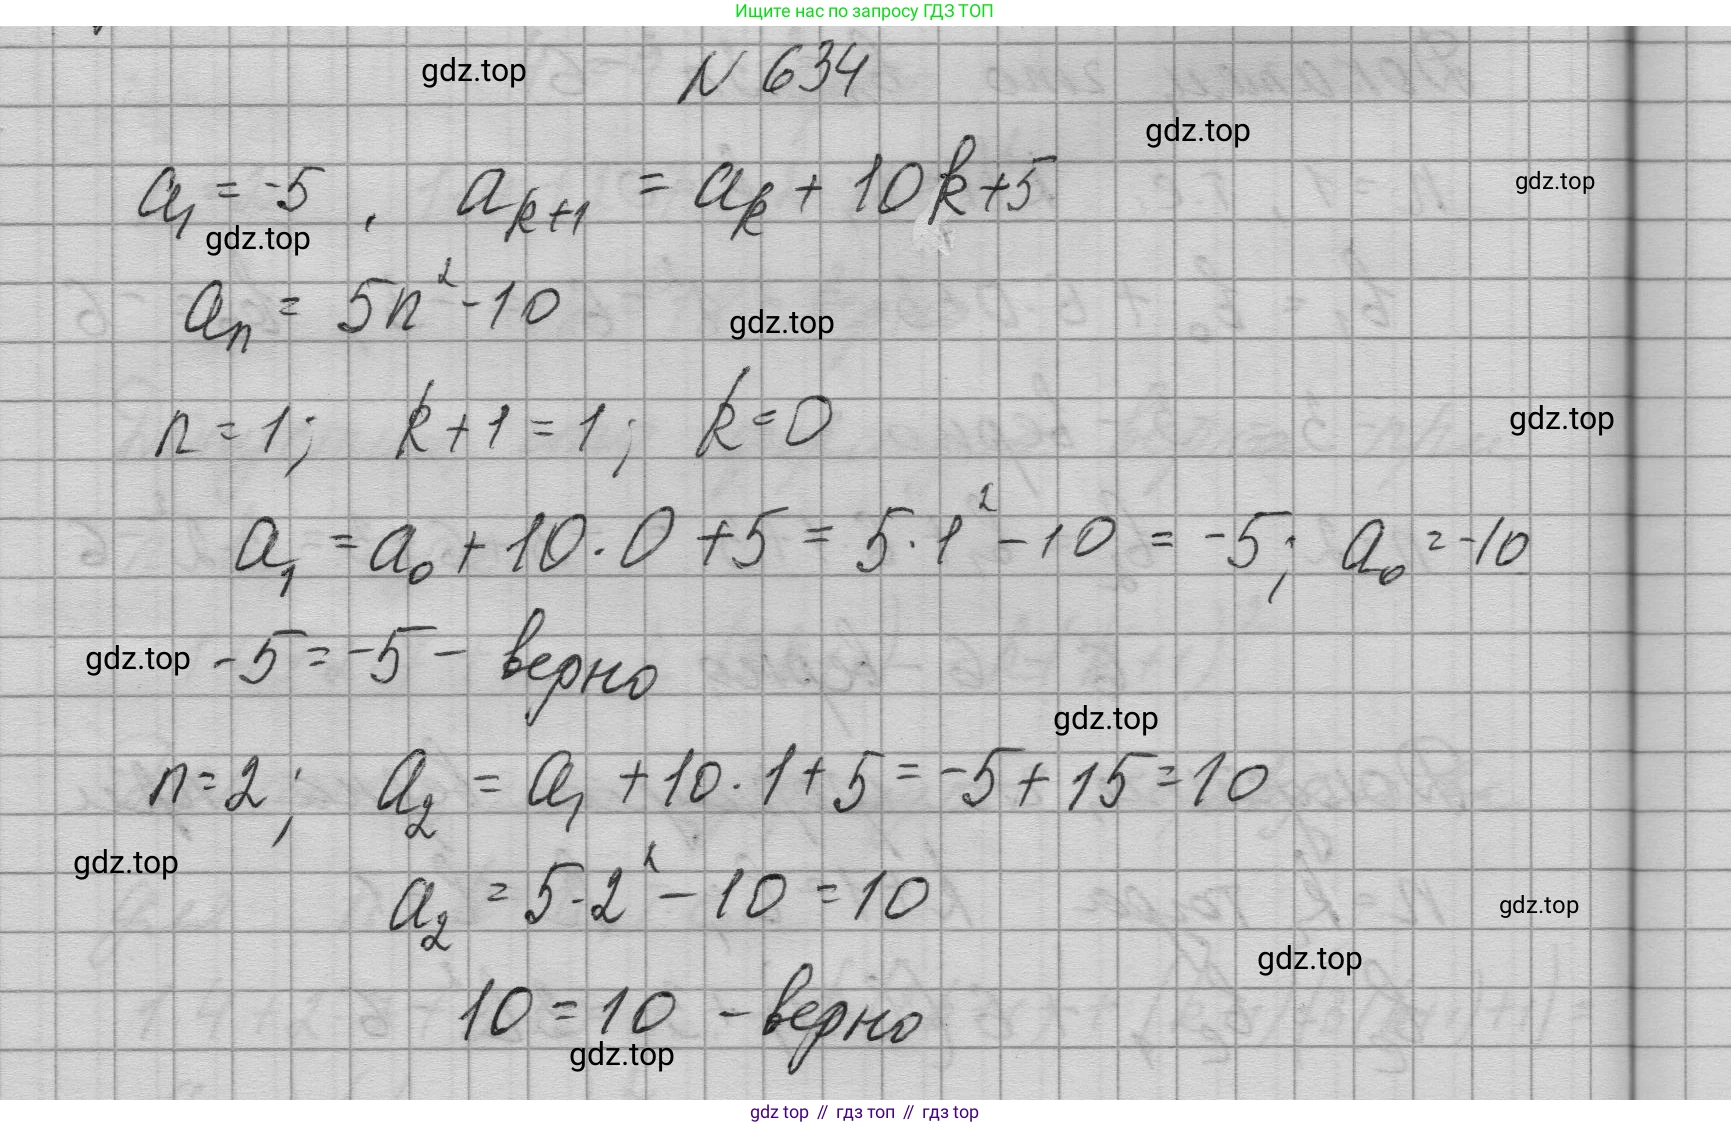 Ищите нас по запросу ГДЗ ТОП
N 634
gdz.top
gdz.top
a₁ = -5, aₖ₊₁ = aₖ + 10k+5
gdz.top
gdz.top
aₙ = 5n² - 10
gdz.top
n = 1; k+1 = 1; k = 0
gdz.top
a₁ = a₀ + 10·0 + 5 = 5·1² - 10 = -5; a₀ = -10
gdz.top
-5 = -5 - верно
gdz.top
n = 2; a₂ = a₁ + 10·1 + 5 = -5 + 15 = 10
gdz.top
a₂ = 5·2² - 10 = 10
gdz.top
gdz.top
10 = 10 - верно
gdz.top
gdz top // гдз топ // гдз top